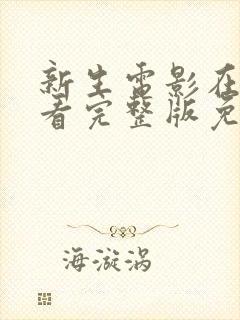 新生电影在
看完整版免
海漩涡